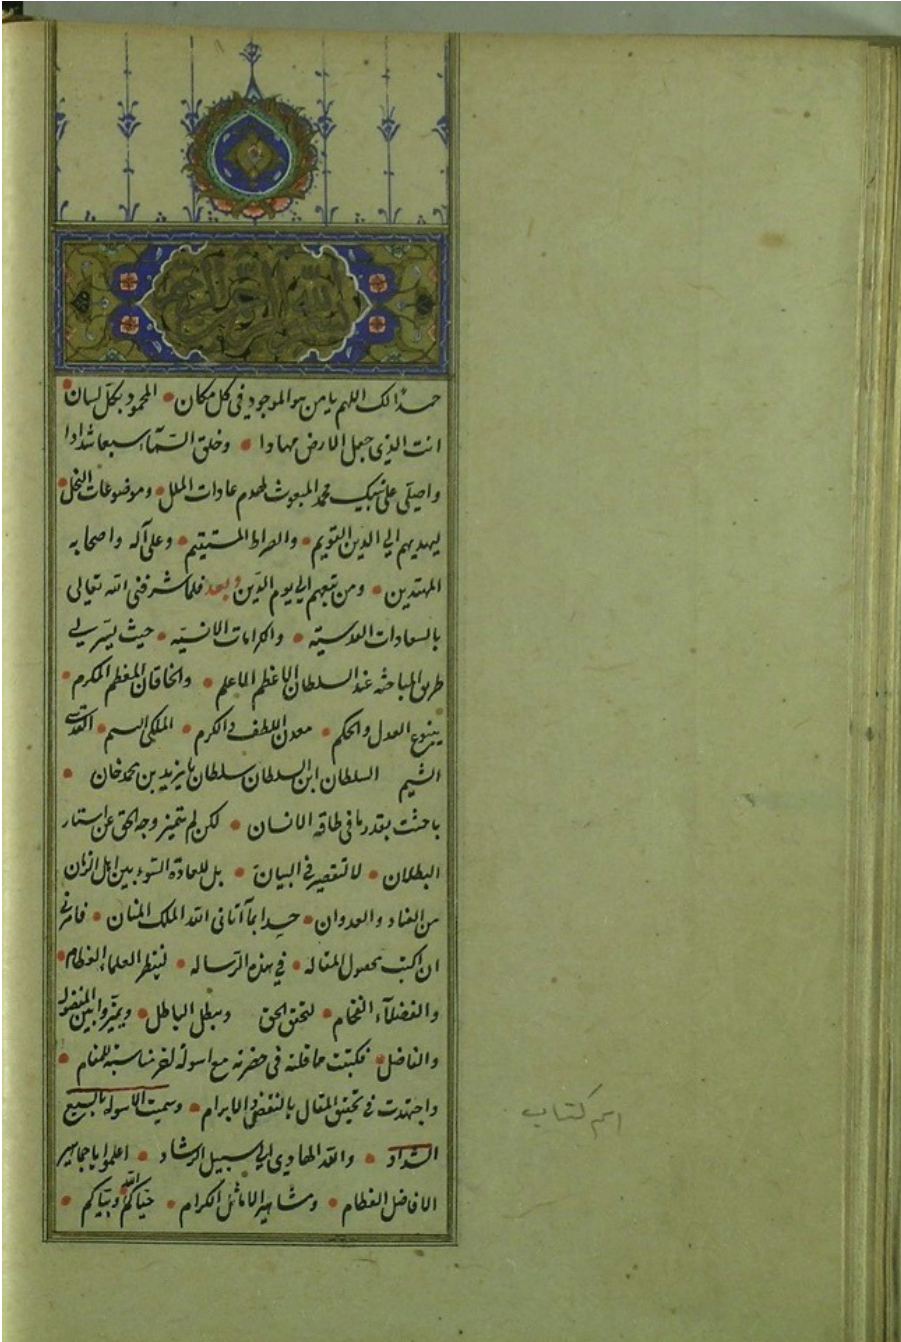 بسم الله الرحمن الرحيم
حمدًا لك اللهم يا من هو الموجود في كل مكان • المحمود بكل لسان •
انت الذي جعل الارض مهادا • وخلق السمآء سبعا شدادا
واصلي على نبيك محمد المبعوث لهدم عادات الملل • وموضوعات النحل •
ليهديهم الي الدين القويم • والصراط المستقيم • وعلى آله واصحابه
المهتدين • ومن تبعهم الي يوم الدين وبعد فلما شرفني الله تعالى
بالسعادات القدسيّه • والكرامات الانسيّه • حيث يسّر لي
طريق المباحثه عند السلطان الاعظم الاعلم • والخاقان المعظم المكرم •
ينبوع العدل والحكم • معدن اللطف والكرم • الملكي السم • القدسي
الشيم السلطان ابن السلطان سلطان بايزيد بن محمد خان •
باحثت بقدر ما في طاقة الانسان • لكن لم يتميز وجه الحق عن استار
البطلان • لا لتقصير في البيان • بل للعادة السوء بين اهل الزمان
من العناد والعدوان • حسدا بما آتاني الله الملك المنان • فامرني
ان اكتب محصول المقاله • في هذه الرساله • لينظر العلماء العظام •
والفضلآء الفخام • لتحق الحق ويبطل الباطل • ويميّزوا بين المفضول
والفاضل • فكتبت ما قلته في حضرته مع اسولة اخر مناسبة للمقام •
واجتهدت في تحقيق المقال بالنقض والابرام • وسميت الاسولة بالسبع
الشداد • والله الهادي الي سبيل الرشاد • اعلموا يا جماهير
الافاضل العظام • ومشاهير الاماثل الكرام • حيّاكم الله وبيّاكم •
اسم كتاب